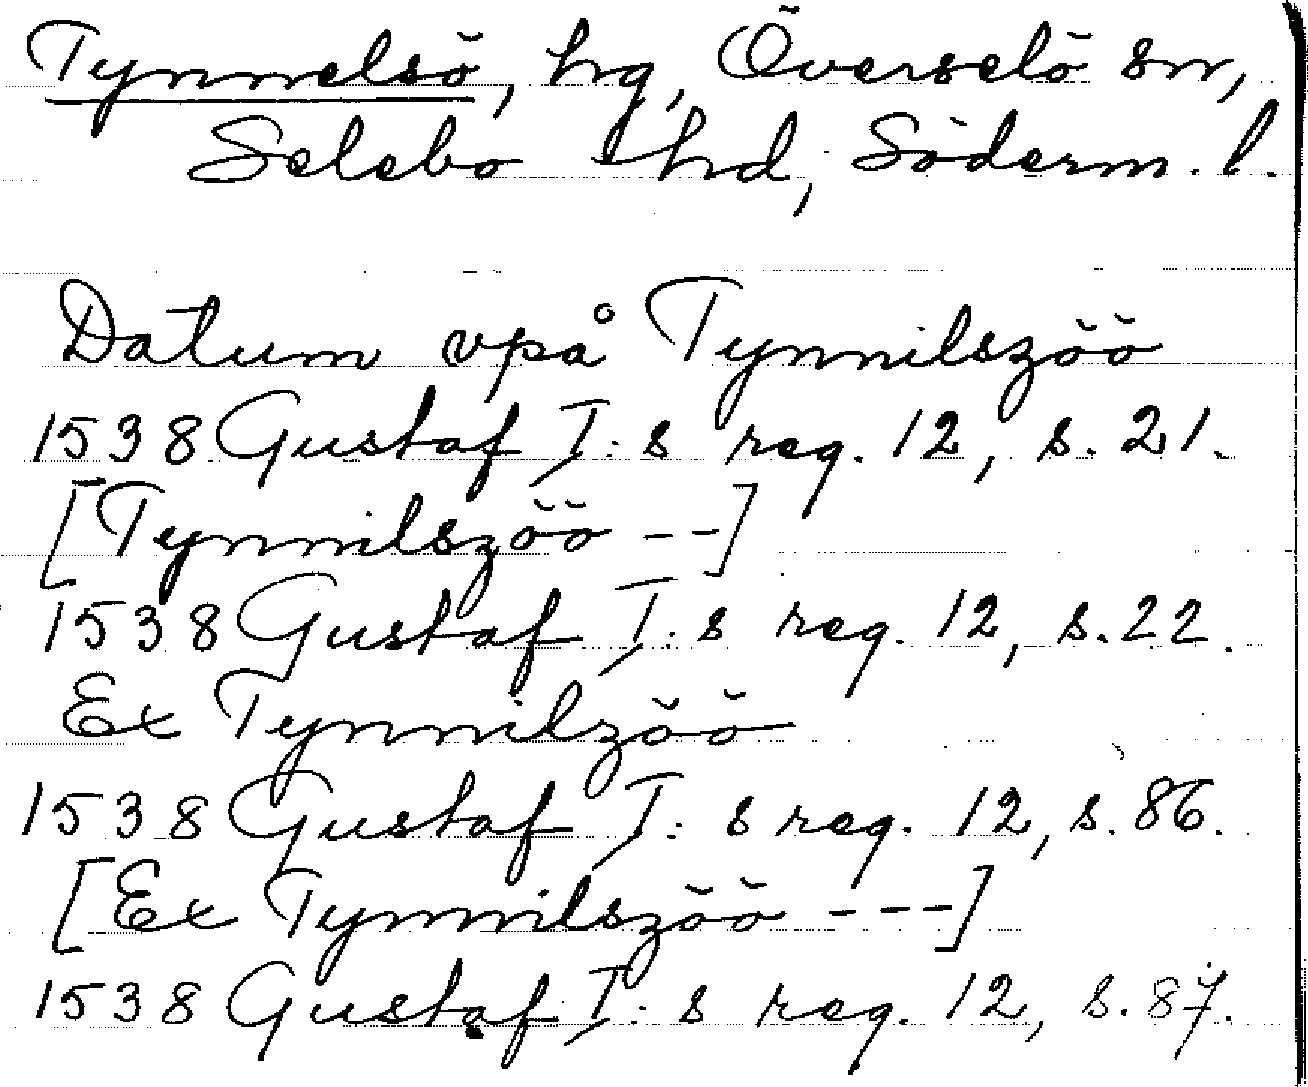 Tynnelsö, hg, Överselö sn,
Selebo hd, Söderm. l.
Datum vpå Tynnilszöö
1538 Gustaf I:s reg. 12, s. 21.
[Tynnilszöö --]
1538 Gustaf I:s reg. 12, s. 22.
Ex Tynnilzöö
1538 Gustaf I:s reg. 12, s. 86.
[Ex Tynnilszöö ---]
1538 Gustaf I:s reg. 12, s. 87.